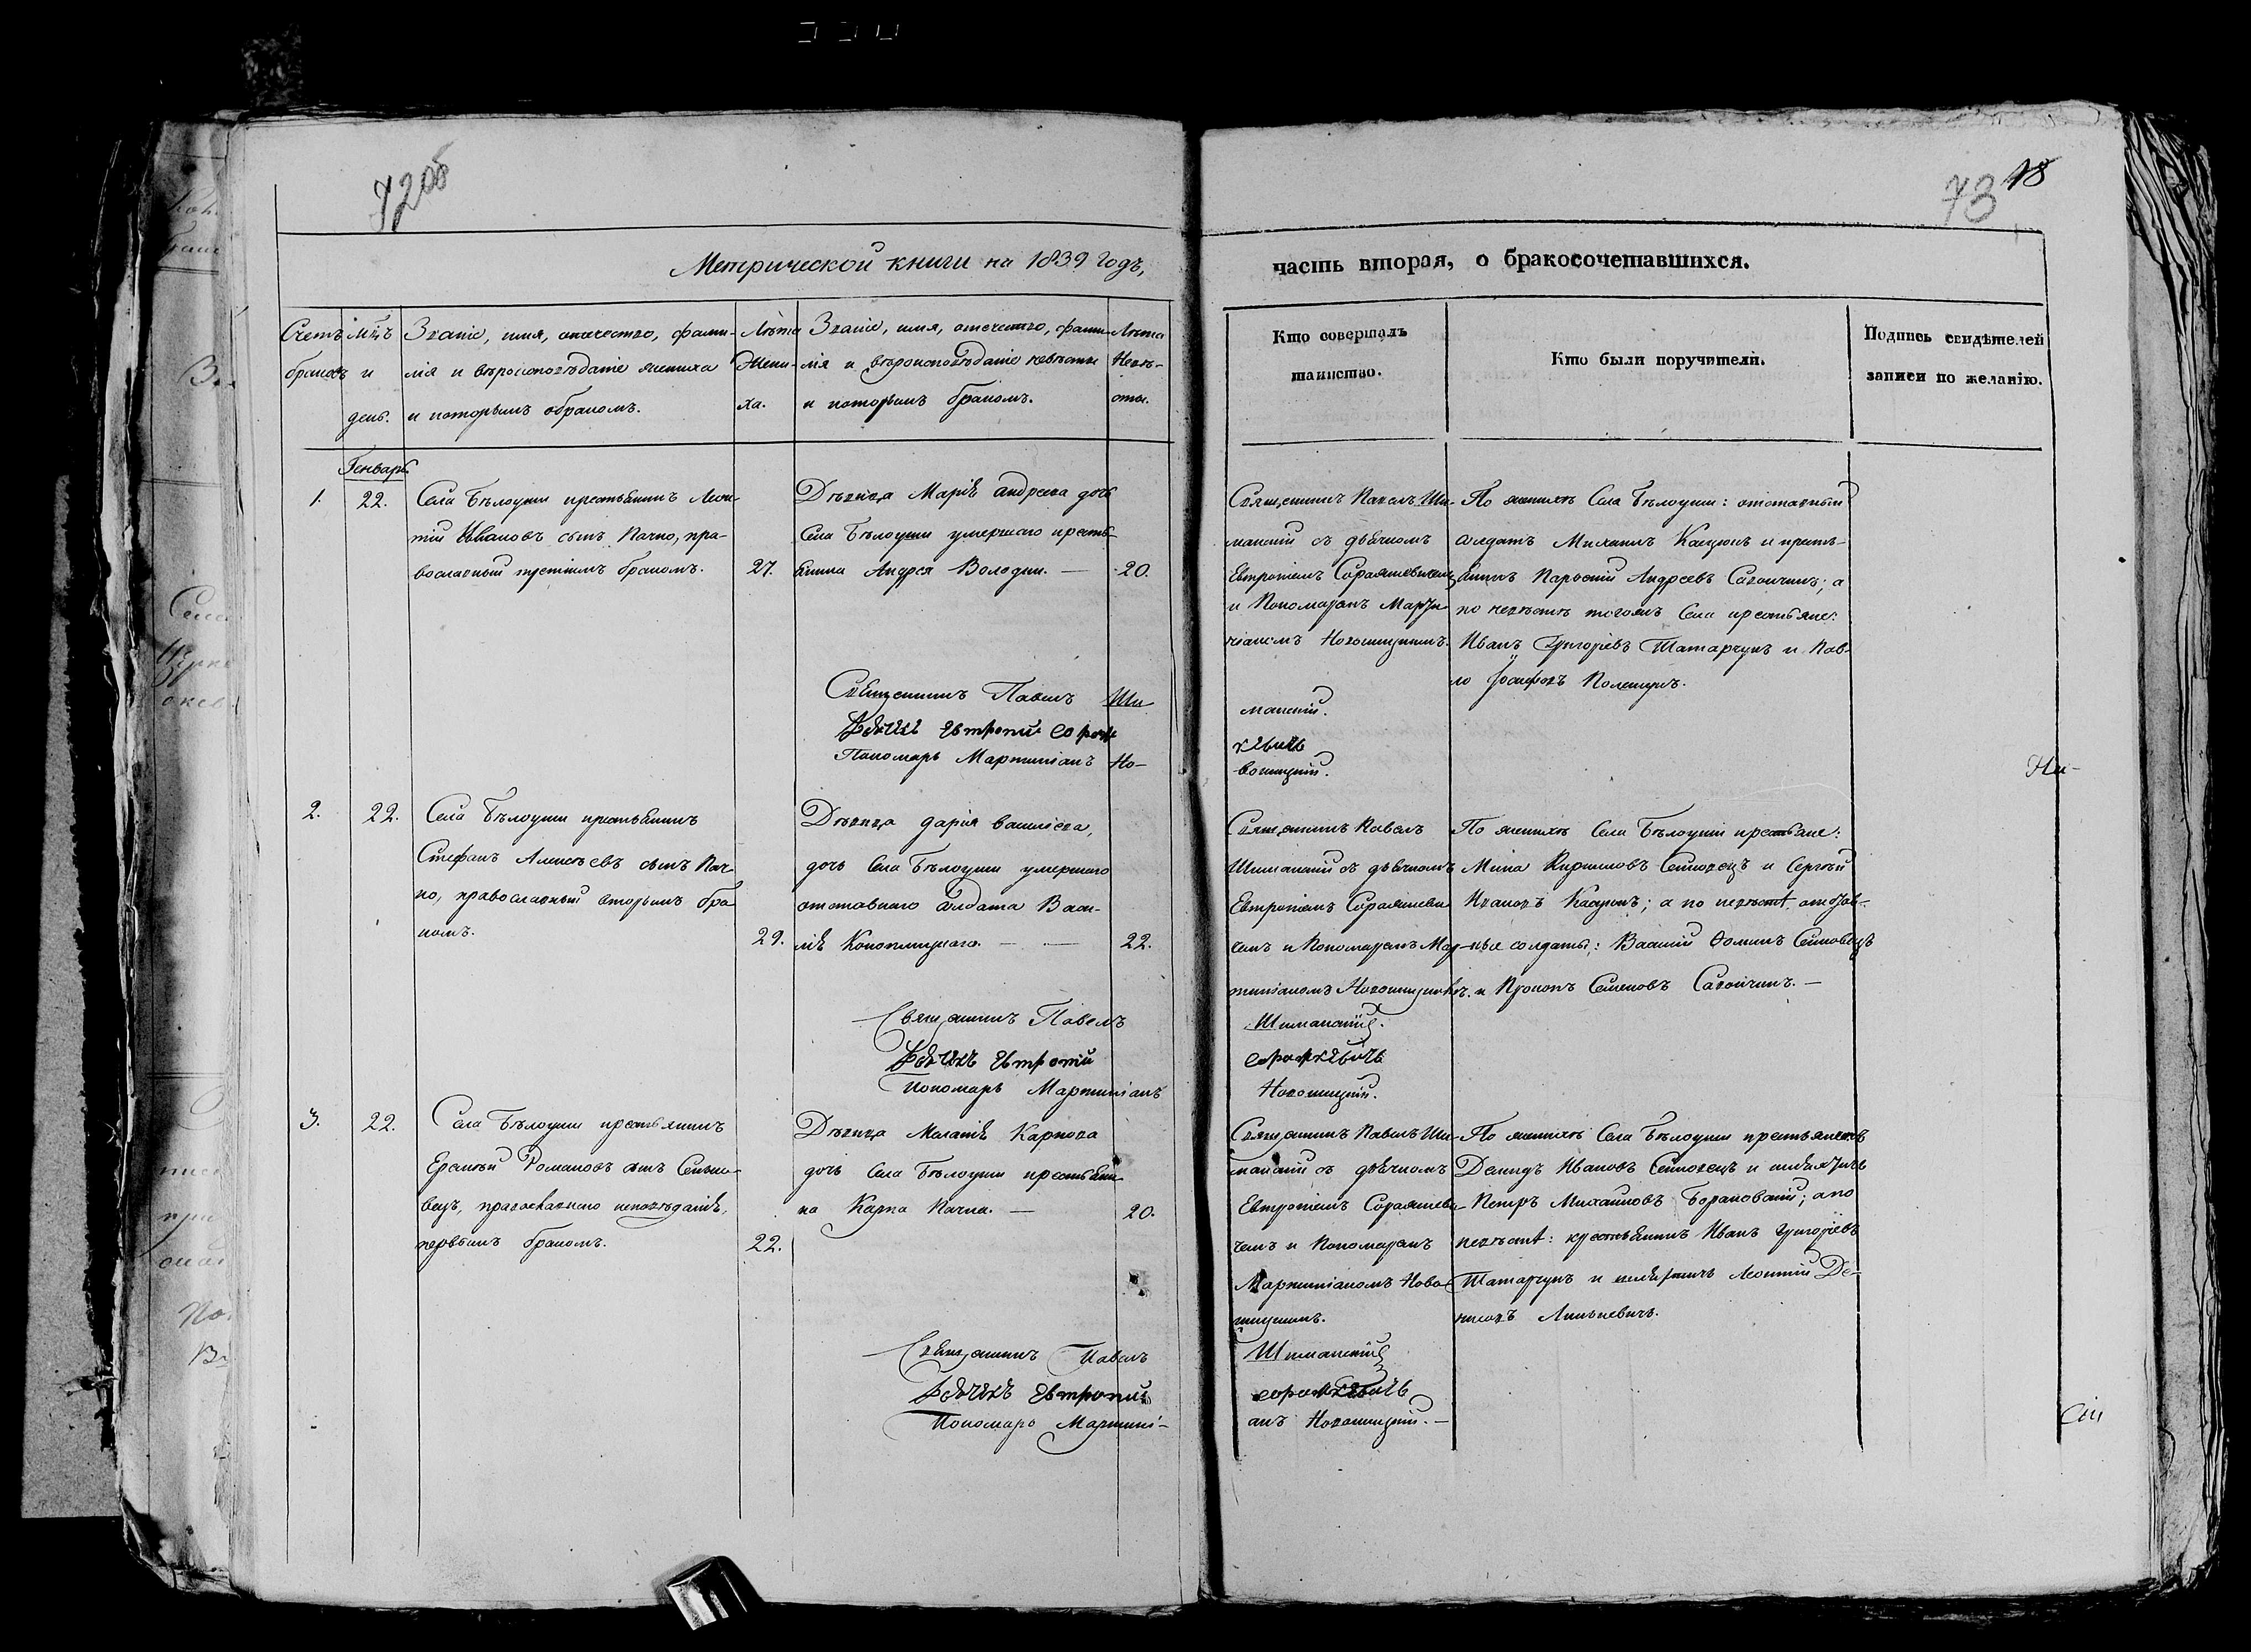 72об
73 18
Метрической книги на 1839 годъ,
часть вторая, о бракосочетавшихся.
Счетъ браковъ
Мцъ и день.
Званіе, имя, отчество, фами-
лія и вѣроисповѣданіе жениха
и которымъ бракомъ.
Лѣта
Жени-
ха.
Званіе, имя, отечество, фами-
лія и вѣроисповѣданіе невѣсты
и которымъ бракомъ.
Лѣта
Невѣ-
сты.
Кто совершалъ
таинство.
Кто были поручители.
Подпись свидѣтелей
записи по желанію.
Генварь.
1.
22.
Села Бѣлоуши крестьянинъ Леон-
тій Ивановъ сынъ Пачко, пра-
вославный третимъ бракомъ.
27.
Дѣвица Марія Андреева дочь
Села Бѣлоуши умершаго кресть-
янина Андрея Володки. —
20.
Священникъ Павелъ Ши-
манскій съ дьячкомъ
Евтропіемъ
и Пономаремъ Марти-
ніаномъ Новошицкимъ.
По женихѣ Села Бѣлоуши: отставный
солдатъ Михаилъ и кресть-
янинъ Андреевъ Савончикъ; а
по невѣстѣ тогожъ Села крестьяне:
Иванъ Григорьевъ Татарчукъ и Пав-
ло Полещукъ.
Священникъ Павелъ Ши
манскій.
Дьячекъ Евтропій
Пономарь Мартиніанъ Но-
вошицкій.
Ни-
2.
22.
Села Бѣлоуши крестьянинъ
Стефанъ Алексѣевъ сынъ Пач-
ко, православный вторымъ бра-
комъ.
29.
Дѣвица Дарія Василіева,
дочь Села Бѣлоуши умершаго
отставнаго солдата Васи-
лія Коноплицкаго. — —
22.
Священникъ Павелъ
Шиманскій съ дьячкомъ
Евтропіемъ
чемъ и Пономаремъ Мар-
тиніаномъ Новошицкимъ.
По женихѣ Села Бѣлоуши крестьяне:
Мина Кириловъ Семковецъ и Сергѣй
Ивановъ; а по невѣстѣ отстав-
ные солдаты: Василій Фоминъ Семковецъ
и Прокопъ Семеновъ Савончикъ. —
Священникъ Павелъ
Шиманскій.
Дьячекъ Евтропій
Пономарь Мартиніанъ
Новошицкій.
3.
22.
Села Бѣлоуши крестьянинъ
Еремѣй Романовъ сынъ Семко-
вецъ, православнаго исповѣданія,
первымъ бракомъ.
22.
Дѣвица Маланія Карпова
дочь Села Бѣлоуши крестьяни-
на Карпа Пачка. —
20.
Священникъ Павелъ Ши-
манскій съ дьячкомъ
Евтропіемъ
чемъ и Пономаремъ
Мартиніаномъ Ново-
шицкимъ.
По женихѣ Села Бѣлоуши крестьянинъ
Демидъ Ивановъ Семковецъ и шляхтичъ
Петръ Михаиловъ Барановскій; а по
невѣстѣ: крестьянинъ Иванъ Григорьевъ
Татарчукъ и шляхтичъ Леонтій Де-
нисовъ Линкевичъ.
Священникъ Павелъ
Шиманскій
Дьячекъ Евтропій
Пономарь Мартині-
анъ Новошицкій. —